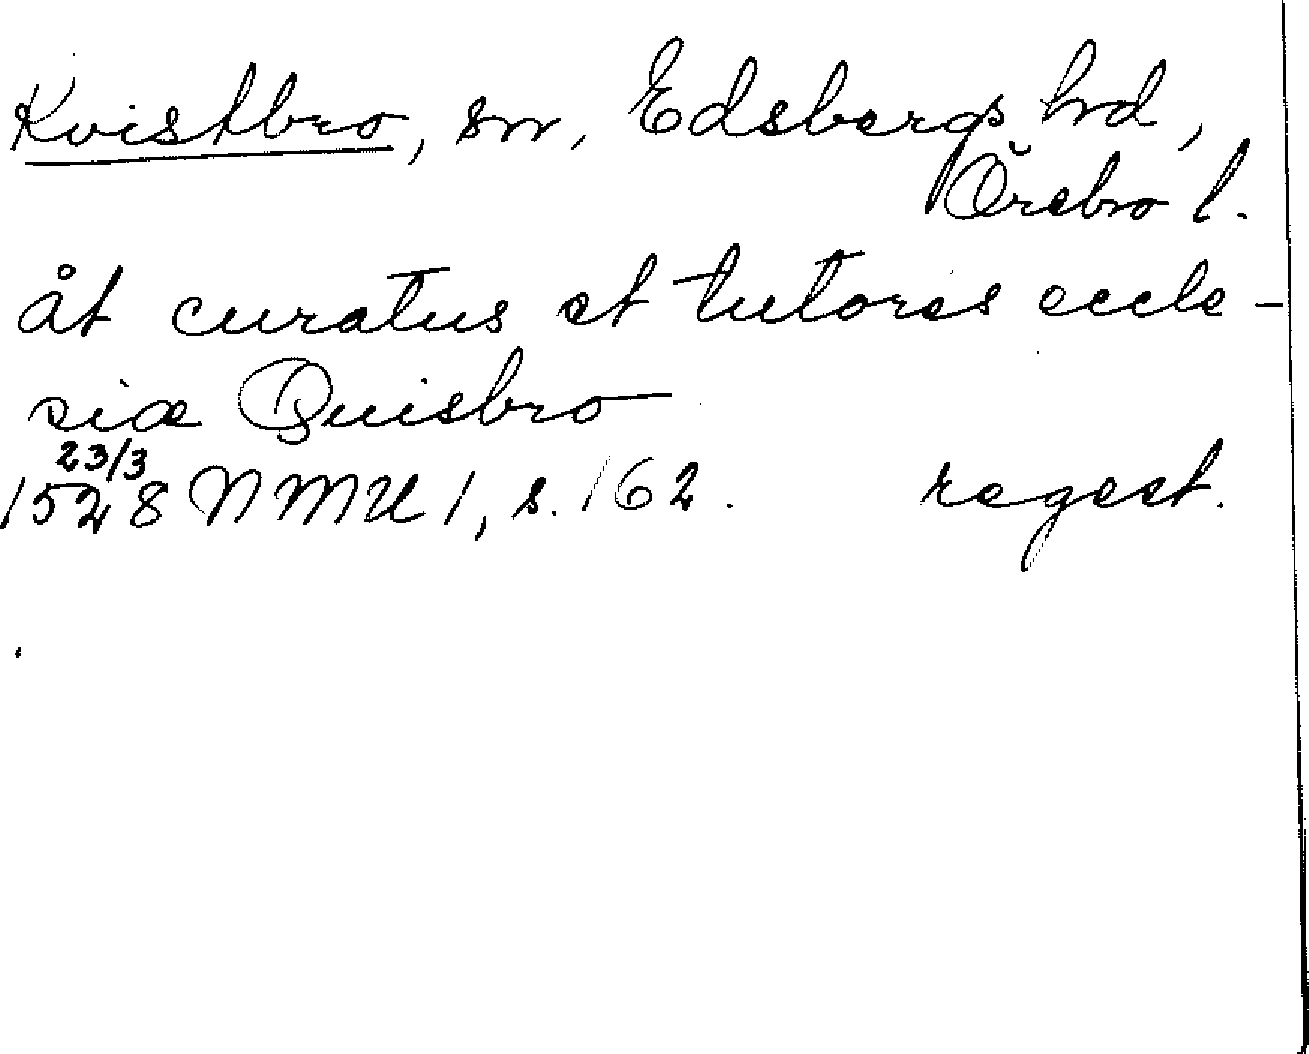 Kvistbro, sn, Edsbergs hrd,
Örebro l.
åt curatus et tutores eccle-
siæ Quisbro
23/3
1528 NMU 1, s. 162. regest.